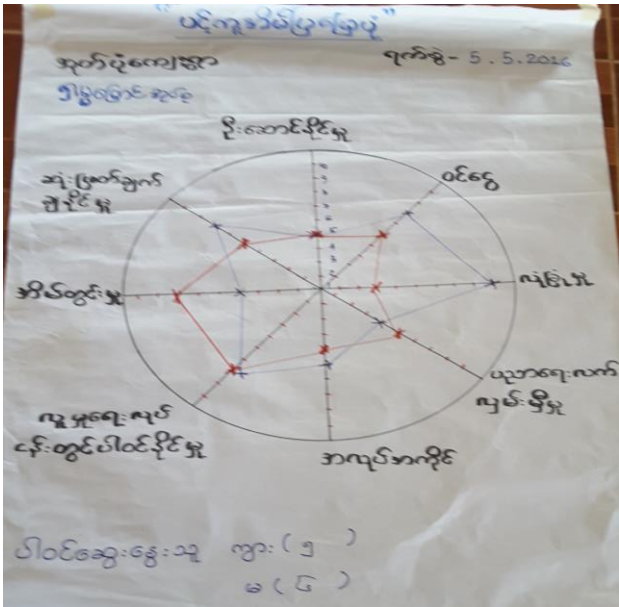 "ပင့်ကူအိမ်ပြမြေပုံ"
အုတ်ပုံကျေးရွာ
ရက်စွဲ - 5.5.2026
ဦးဆောင်နိုင်မှု
ဝင်ငွေ
လုံခြုံမှု
ပညာရေးလက်
လှမ်းမှီမှု
အလုပ်အကိုင်
လူမှုရေးလုပ်
ငန်းတွင်ပါဝင်နိုင်မှု
အိမ်တွင်းမှု
ဆုံးဖြတ်ချက်
ချနိုင်မှု
ပါဝင်ဆွေးနွေးသူ ကျား (၅)
မ (၆)